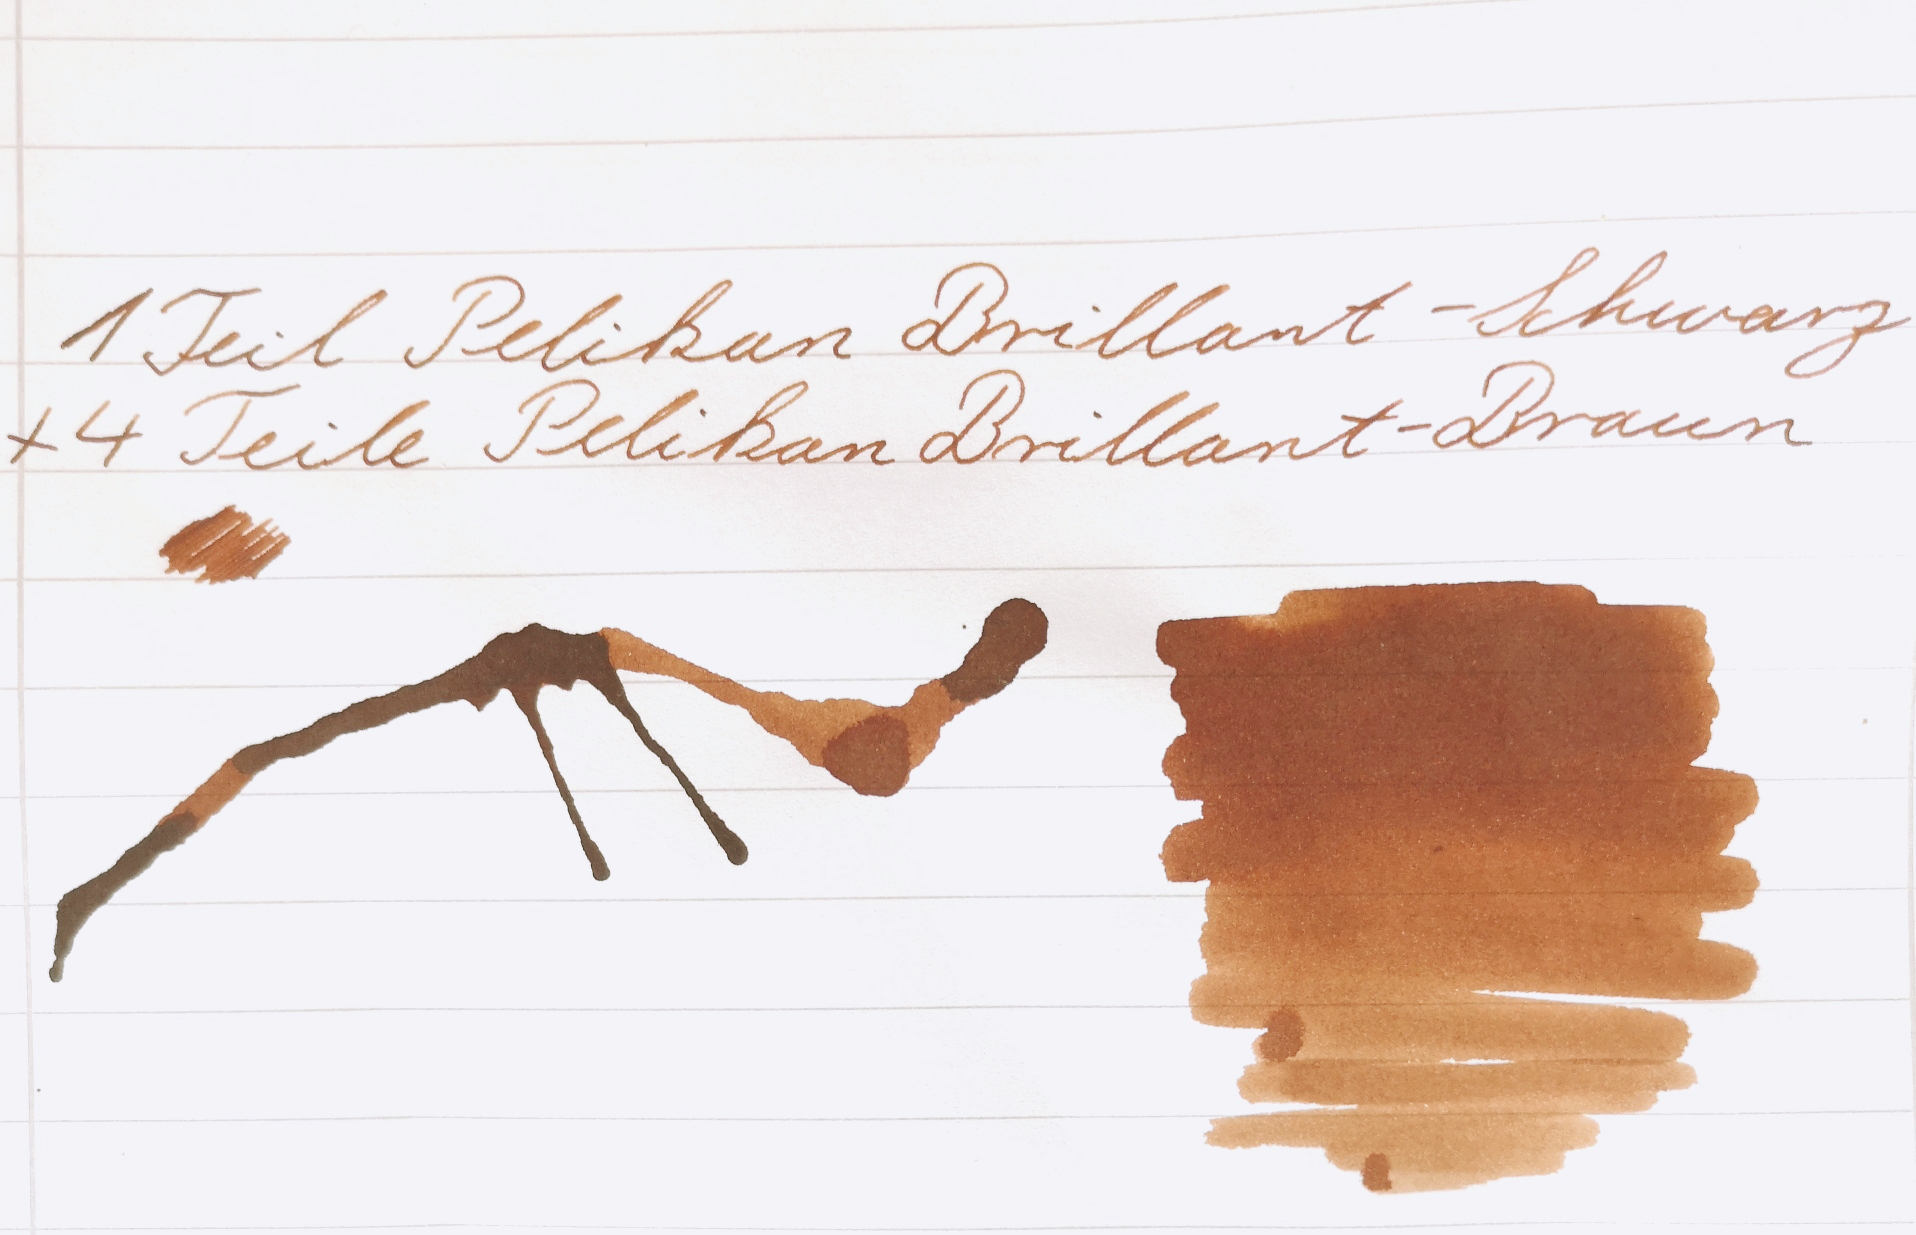 1 Teil Pelikan Brillant-Schwarz
+ 4 Teile Pelikan Brillant-Braun